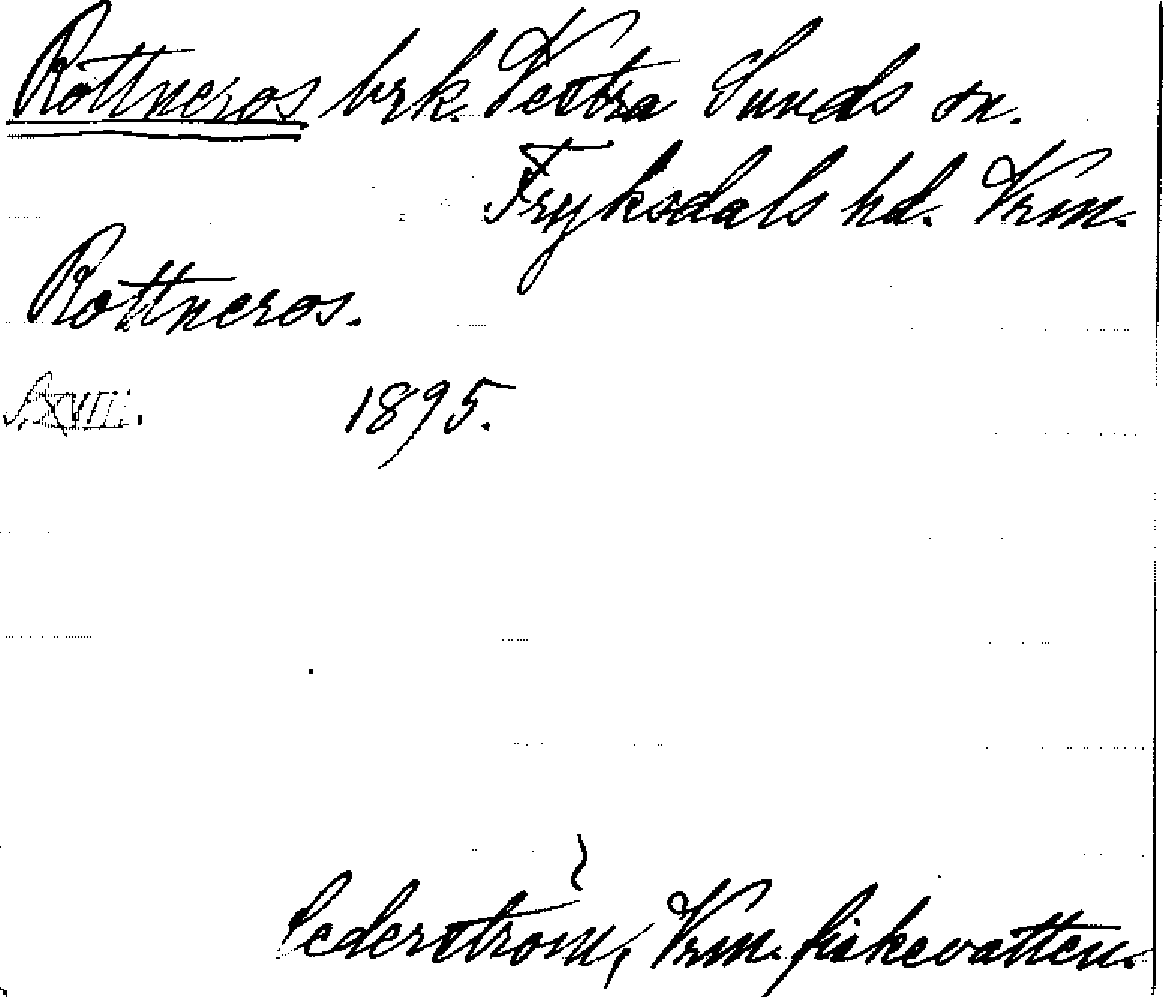 Rottneros brk. Vestra Sunds sn.
Fryksdals hd. Vrm.
Rottneros.
1895.
Cederström, Vrm. fiskevatten.